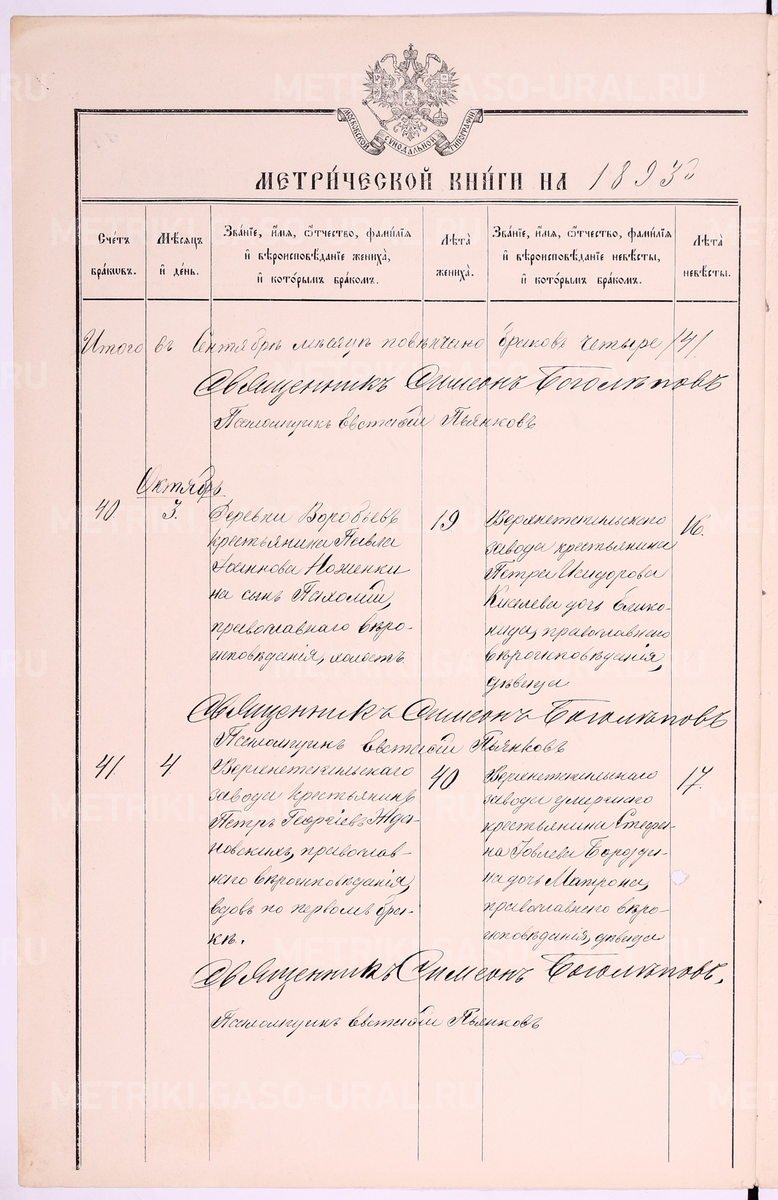 МОСКОВСКОЙ СѴНОДАЛЬНОЙ ТИПОГРАФІИ
МЕТРИ́ЧЕСКОЙ КНИ́ГИ НА 1893
Сче́тъ бра́кωвъ.
Мѣ́сѧцъ и҆ де́нь.
Зва́нїе, и҆́мѧ, ѻ҆́тчество, фами́лїѧ
и҆ вѣроисповѣ́данїе жениха̀,
и҆ кото́рымъ бра́комъ.
Лѣ́та жениха̀.
Зва́нїе, и҆́мѧ, ѻ҆́тчество, фами́лїѧ
и҆ вѣроисповѣ́данїе невѣ́сты,
и҆ кото́рымъ бра́комъ.
Лѣ́та невѣ́сты.
Итого въ Сентябрѣ мѣсяцѣ повѣнчано браковъ четыре /4/.
Священникъ Симеонъ Боголѣповъ
Псаломщикъ Евстафій Пьянковъ
Октябрь
40.
3.
Деревни Воробьевъ
крестьянина Павла
Іоаннова Ноженки
на сынъ Пахомій,
православнаго вѣро-
исповѣданія, холостъ
19
крестьянина
завода
Петра Исидорова
Киселева дочь
православнаго
вѣроисповѣданія,
дѣвица
16.
Священникъ Симеонъ Боголѣповъ
Псаломщикъ Евстафій Пьянковъ
41.
4
завода крестьянинъ
Петръ Георгіевъ Жда-
новскихъ, православ-
наго вѣроисповѣданія,
вдовъ по первомъ бра-
кѣ.
40
завода умершаго
крестьянина Стефа-
на Іовлева Бороди-
на дочь Матрона,
православнаго вѣро-
исповѣданія, дѣвица
17.
Священникъ Симеонъ Боголѣповъ.
Псаломщикъ Евстафій Пьянковъ
METRIKI.GASO-URAL.RU